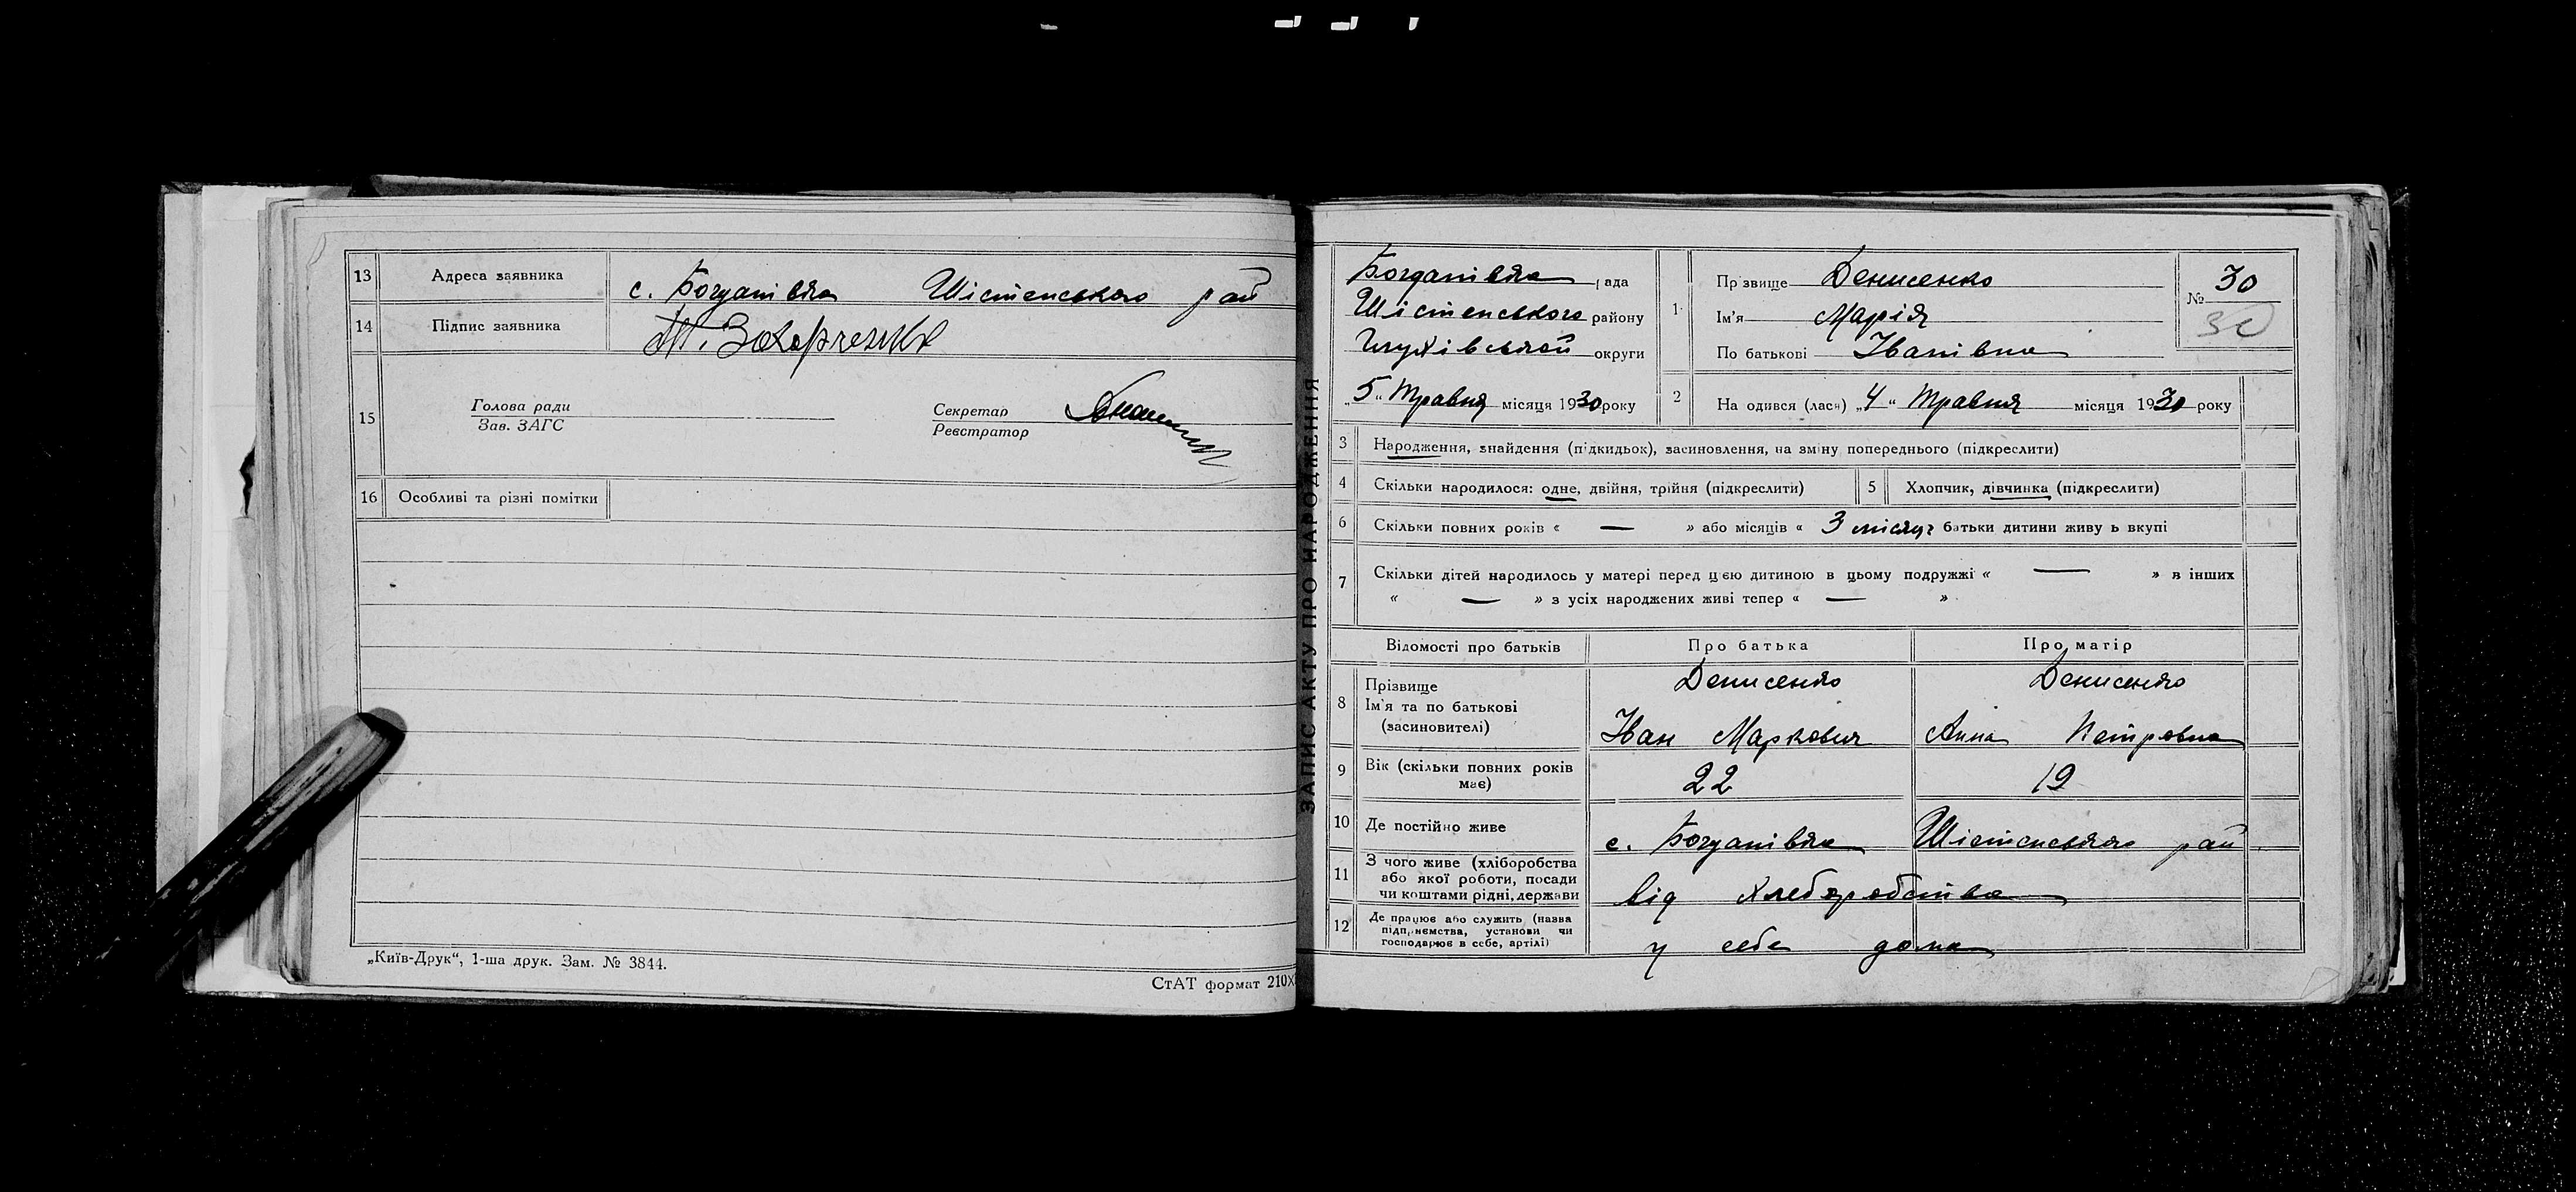 13 Адреса заявника с. Богданівка Шістенського рай
14 Підпис заявника М. Захарченко
15 Голова ради
Зав. ЗАГС
Секретар
Реєстратор
16 Особливі та різні помітки
„Київ-Друк“, 1-ша друк. Зам. № 3844.
СтАТ формат 210X
ЗАПИС АКТУ ПРО НАРОДЖЕННЯ
Богданівка рада
Шістенського району
Глухівській округи
„5“ Травня місяця 1930 року
1 Прізвище Денисенко
Ім'я Марія
По батькові Іванівна
№ 30
30
2 На одився (лася) „4“ Травня місяця 1930 року
3 Народження, знайдення (підкидьок), засиновлення, на зміну попереднього (підкреслити)
4 Скільки народилося: одне, двійня, трійня (підкреслити)
5 Хлопчик, дівчинка (підкреслити)
6 Скільки повних років « — » або місяців « 3 місяця батьки дитини живуть вкупі
7 Скільки дітей народилось у матері перед цією дитиною в цьому подружжі « — » в інших
« — » з усіх народжених живі тепер « — »
Відомості про батьків Про батька Про матір
8 Прізвище Денисенко Денисенко
Ім'я та по батькові
(засиновителі) Іван Маркович Анна Петровна
9 Вік (скільки повних років
має) 22 19
10 Де постійно живе с. Богданівка Шістенського рай
11 З чого живе (хліборобства
або якої роботи, посади
чи коштами рідні, держави від хлеборобства
12 Де працює або служить (назва
підприємства, установи чи
господарює в себе, артілі) у себе дома